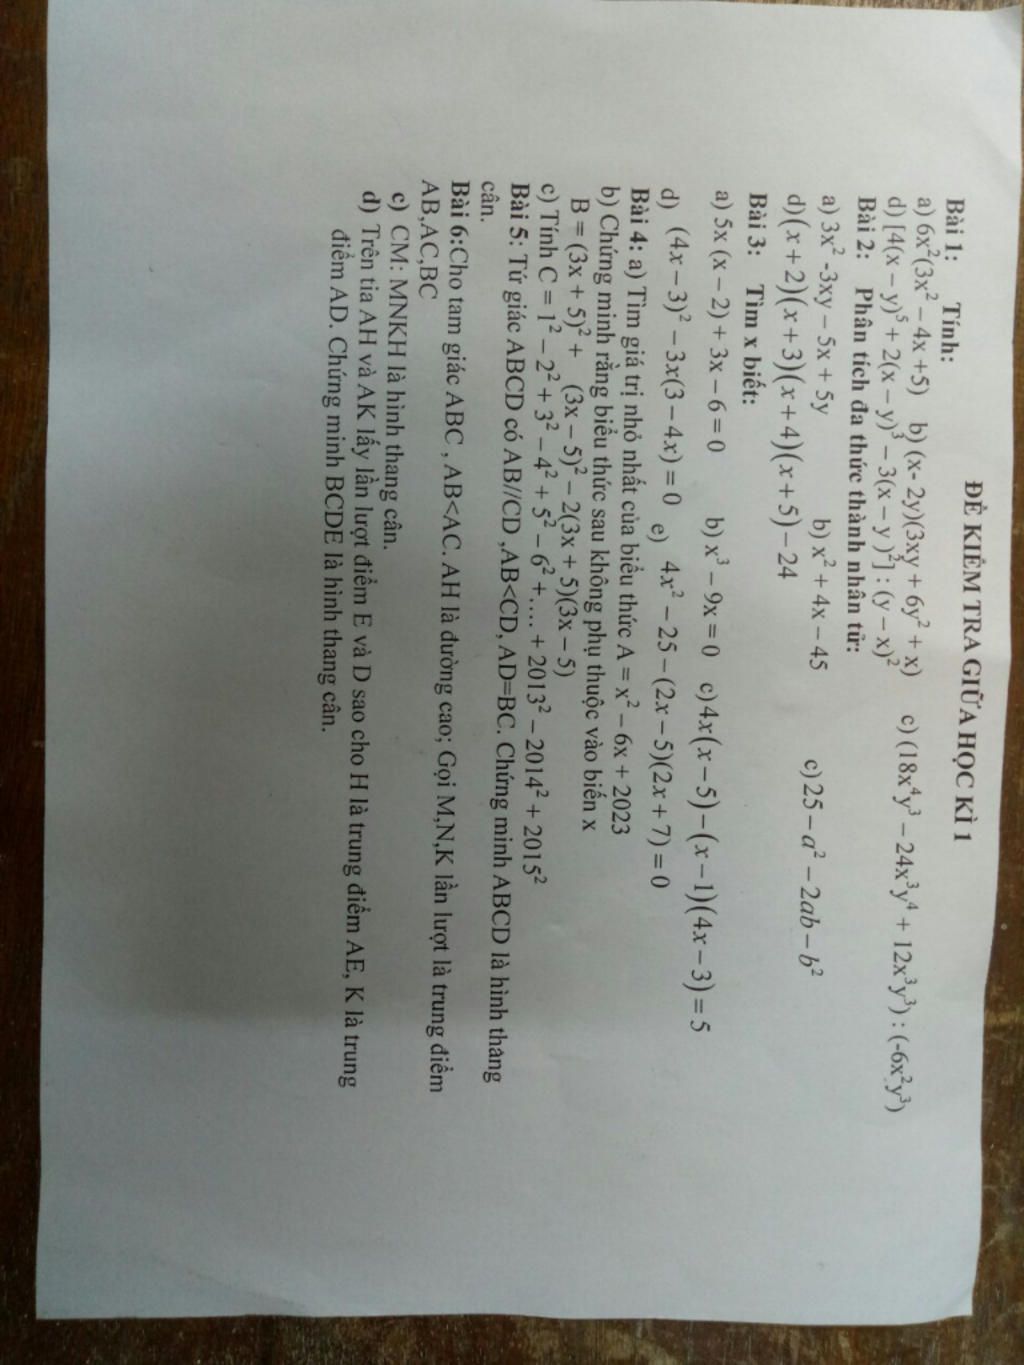 ĐỀ KIỂM TRA GIỮA HỌC KÌ 1
Bài 1: Tính:
a) 6x²(3x² – 4x +5) b) (x- 2y)(3xy + 6y² + x) c) (18x⁴y³ – 24x³y⁴ + 12x³y³) : (-6x²y³)
d) [4(x – y)⁵ + 2(x – y)³ – 3(x – y )²] : (y – x)²
Bài 2: Phân tích đa thức thành nhân tử:
a) 3x² -3xy – 5x + 5y b) x² + 4x – 45 c) 25 – a² – 2ab – b²
d) (x + 2)(x + 3)(x + 4)(x + 5) – 24
Bài 3: Tìm x biết:
a) 5x (x – 2) + 3x – 6 = 0 b) x³ – 9x = 0 c) 4x(x – 5) – (x – 1)(4x – 3) = 5
d) (4x – 3)² – 3x(3 – 4x) = 0 e) 4x² – 25 – (2x – 5)(2x + 7) = 0
Bài 4: a) Tìm giá trị nhỏ nhất của biểu thức A = x² – 6x + 2023
b) Chứng minh rằng biểu thức sau không phụ thuộc vào biến x
B = (3x + 5)² + (3x – 5)² – 2(3x + 5)(3x – 5)
c) Tính C = 1² – 2² + 3² – 4² + 5² – 6² +.... + 2013² – 2014² + 2015²
Bài 5: Tứ giác ABCD có AB//CD ,AB<CD, AD=BC. Chứng minh ABCD là hình thang
cân.
Bài 6:Cho tam giác ABC , AB<AC. AH là đường cao; Gọi M,N,K lần lượt là trung điểm
AB,AC,BC
c) CM: MNKH là hình thang cân.
d) Trên tia AH và AK lấy lần lượt điểm E và D sao cho H là trung điểm AE, K là trung
điểm AD. Chứng minh BCDE là hình thang cân.